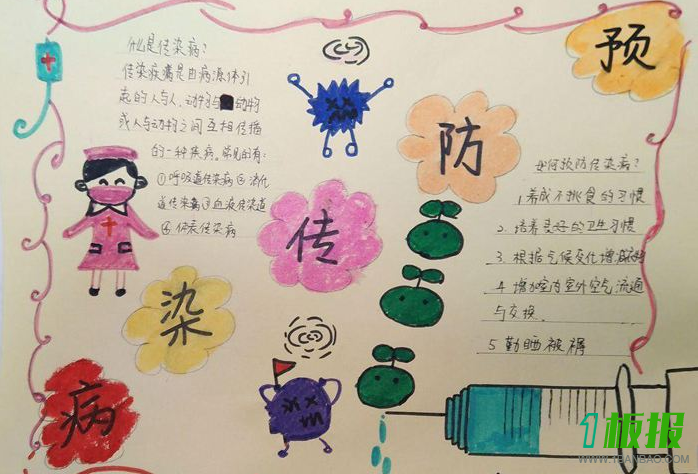 预
防
传
染
病
什么是传染病？
传染疾病是由病源体引
起的人与人、动物与动物
或人与动物之间互相传播
的一种疾病。常见的有：
①呼吸道传染病②消化
道传染病③血液传染道
④体表传染病
如何预防传染病？
1.养成不挑食的习惯
2.培养良好的卫生习惯
3.根据气候变化增减衣物
4.增加室内室外空气流通
与交换.
5勤晒被褥
1板报
WWW.1BANBAO.COM